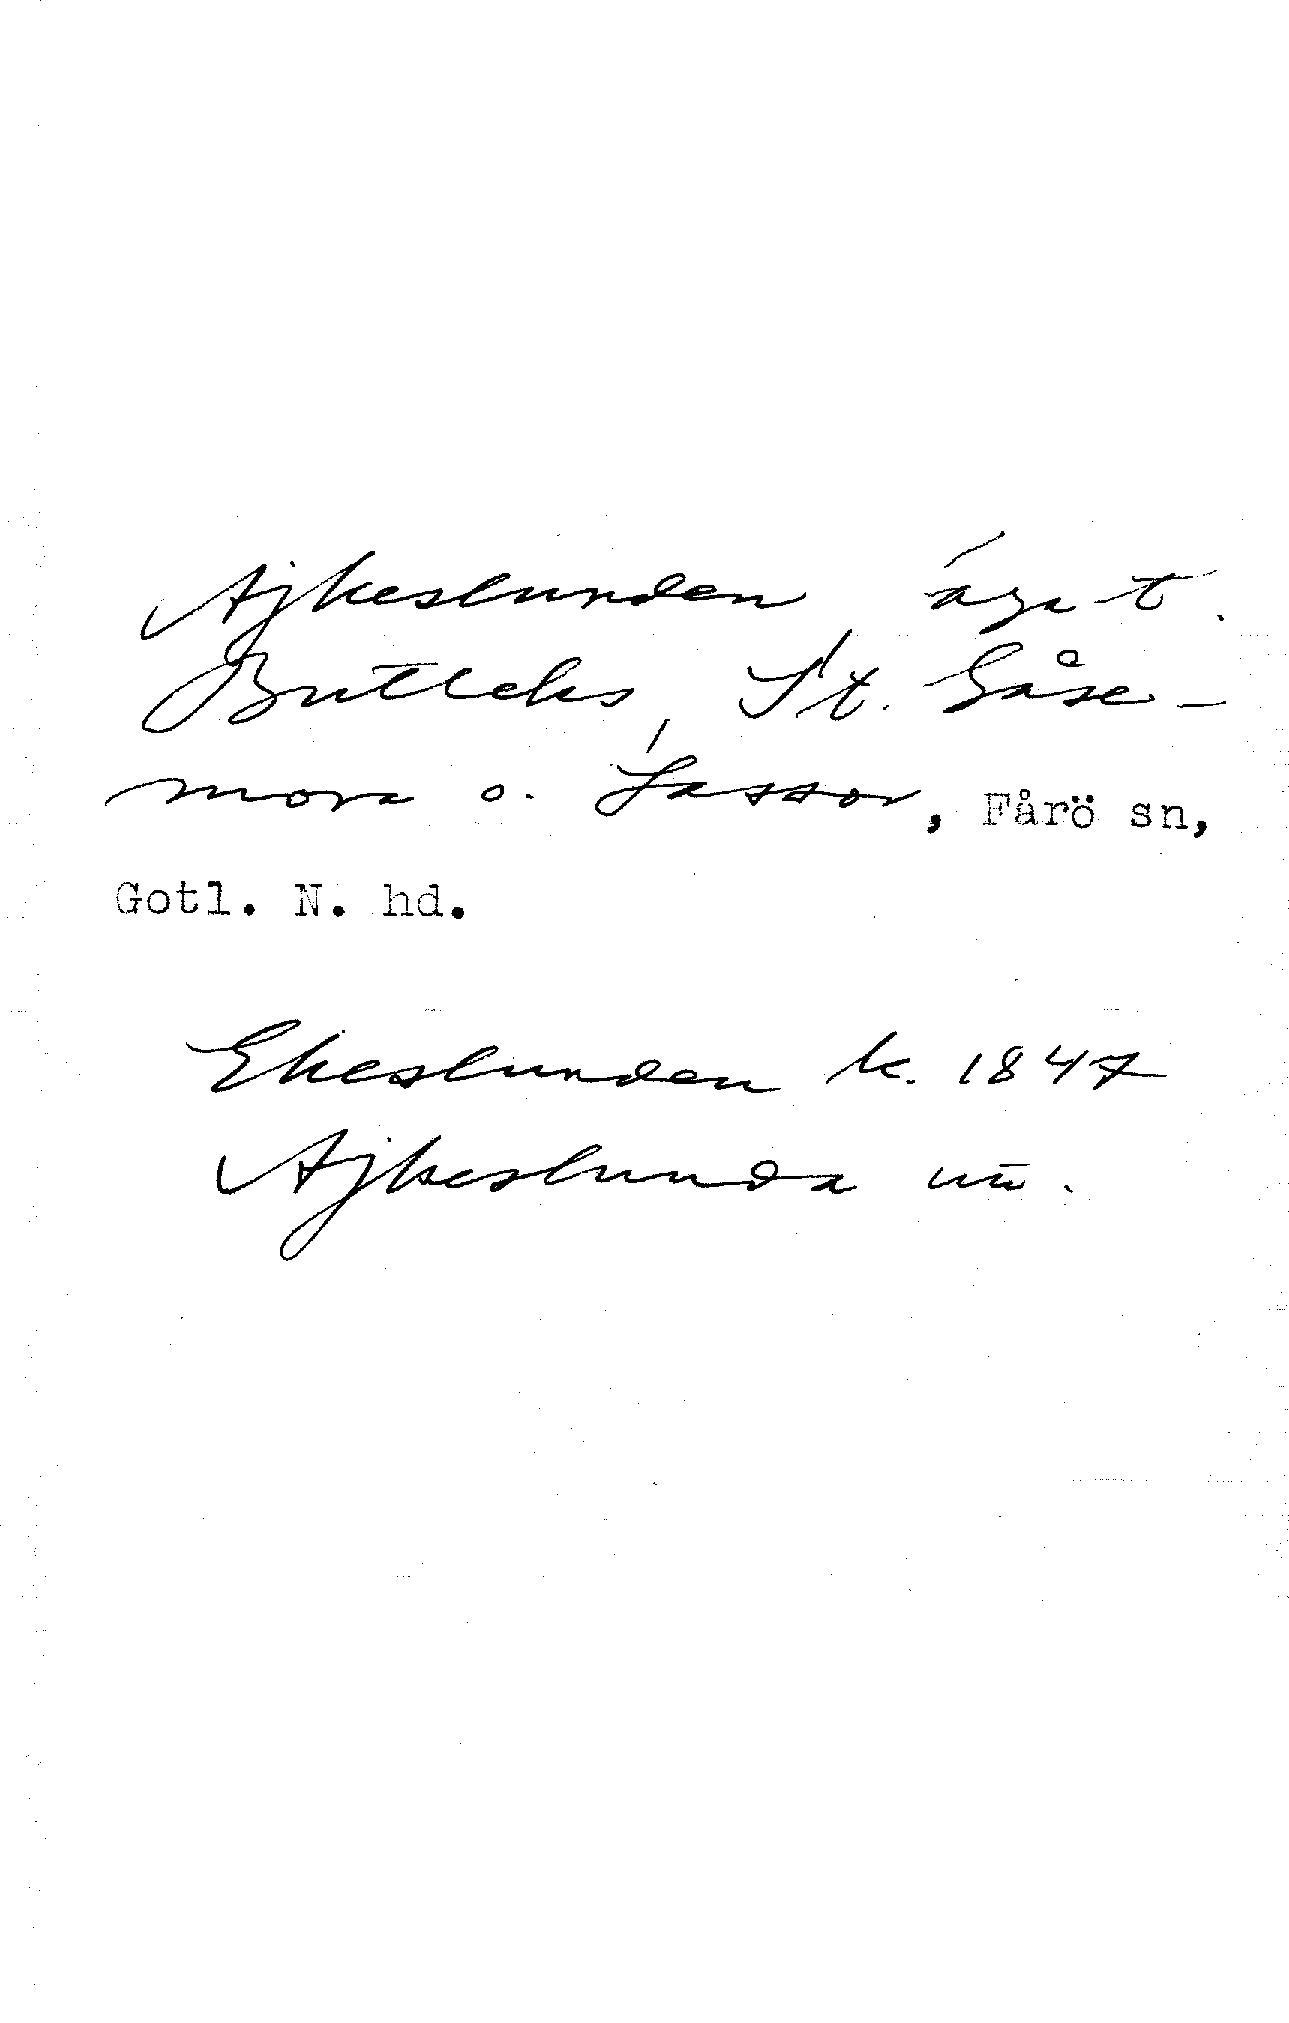 Ajkeslunden, äga t.
Buttleks, St. Gåse-
mora o. Lassor, Fårö sn,
Gotl. N. hd.
Ekeslunden k. 1847
Ajkeslunda nū.